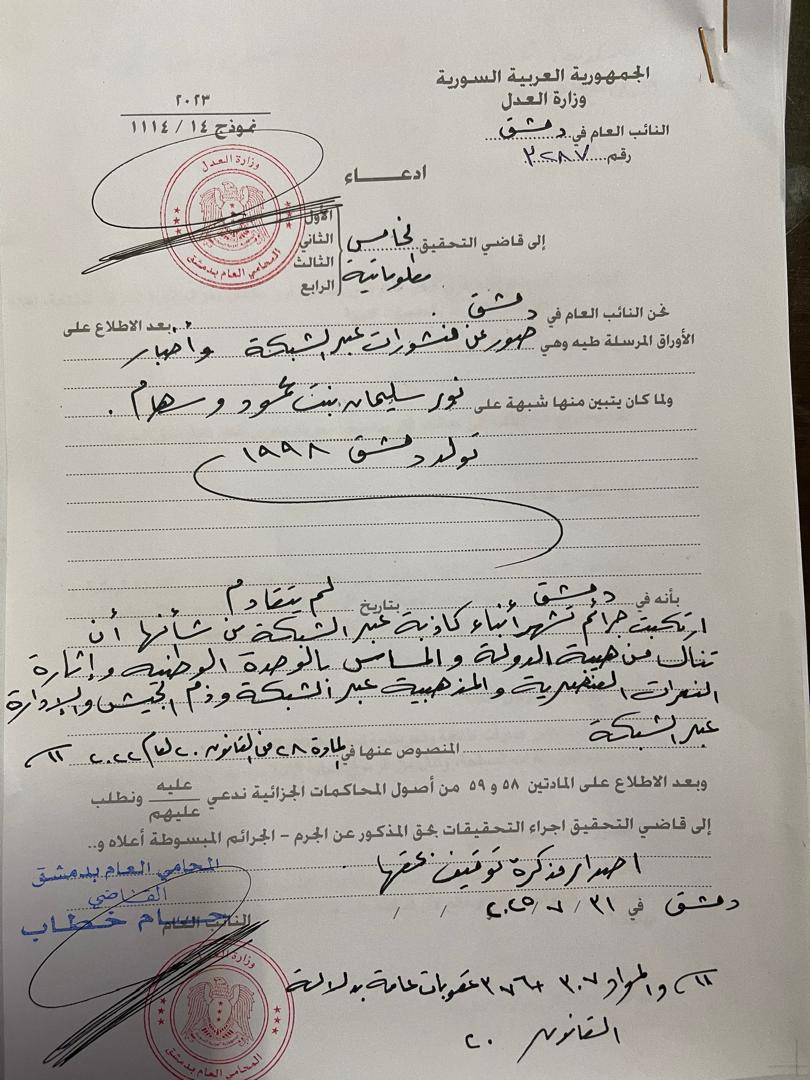 الجمهورية العربية السورية
وزارة العدل
النائب العام في دمشق
رقم ٣٢٨٧
٢٠٢٣
نموذج ١٤ / ١١١٤
وزارة العدل
المحامي العام بدمشق
ادعـــاء
إلى قاضي التحقيق الخامس
معلوماتية
الأول
الثاني
الثالث
الرابع
نحن النائب العام في دمشق بعد الاطلاع على
الأوراق المرسلة طيه وهي صور عن منشورات عبر الشبكة واخبار
ولما كان يتبين منها شبهة على نور سليمان بنت محمود وسهام .
تولد دمشق ١٩٩٨
بأنه في دمشق بتاريخ لم يتقادم
ارتكبت جرائم نشر أنباء كاذبة عبر الشبكة من شأنها أن
تنال من هيبة الدولة والمساس بالوحدة الوطنية وإثارة
النعرات العنصرية والمذهبية عبر الشبكة وذم الجيش والإدارة
عبر الشبكة
المنصوص عنها في المادة ٢٨ من القانون ٢٠ لعام ٢٠٢٢
وبعد الاطلاع على المادتين ٥٨ و ٥٩ من أصول المحاكمات الجزائية ندعي عليه عليهم ونطلب
إلى قاضي التحقيق اجراء التحقيقات بحق المذكور عن الجرم – الجرائم المبسوطة أعلاه و..
اصدار مذكرة توقيف بحقها
دمشق في ٣١ / ٧ / ٢٠٢٥
/ /
المحامي العام بدمشق
القاضي
حسام خطاب
النائب العام
وزارة العدل
المحامي العام بدمشق
والمواد ٣٠٧ ٣٧٦ عقوبات عامة بدلالة
القانون ٢٠